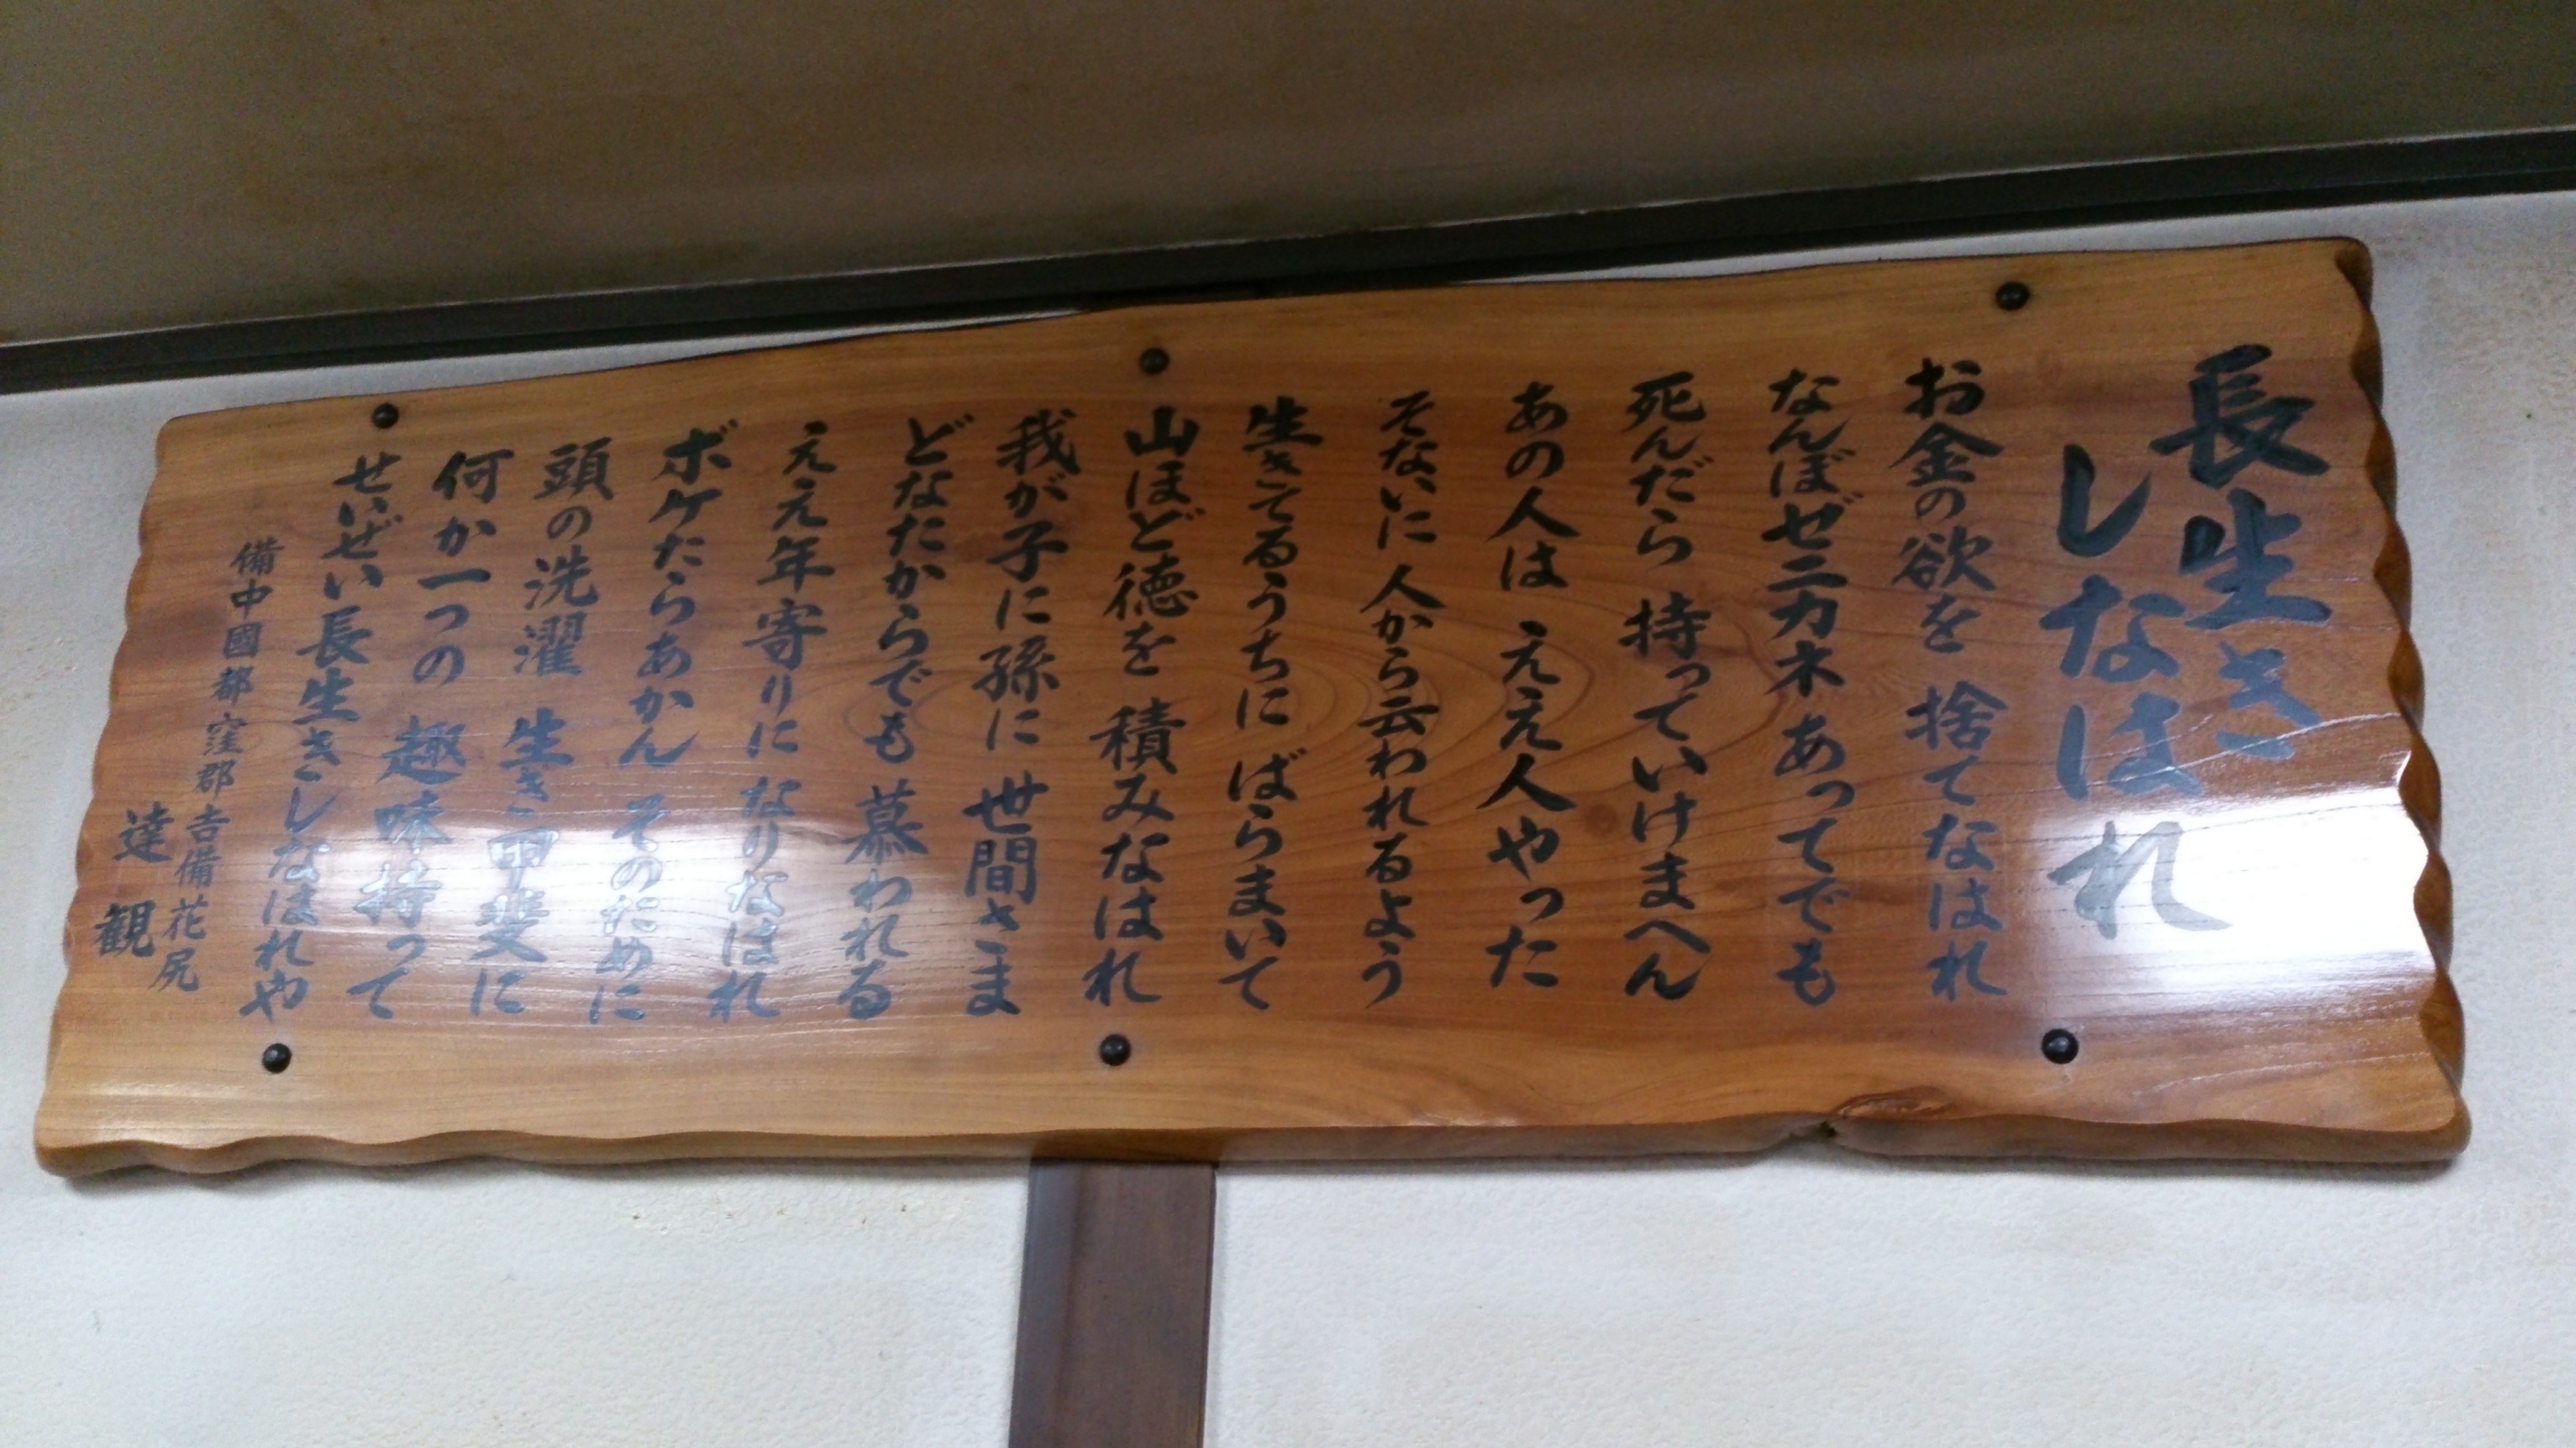 長生き
しなはれ
お金の欲を 捨てなはれ
なんぼゼニカ木あってでも
死んだら 持っていけまへん
あの人は ええ人やった
そないに 人から云われるよう
生きてるうちに ばらまいて
山ほど徳を 積みなはれ
我が子に孫に 世間さま
どなたからでも 慕われる
ええ年寄りに なりなはれ
ボケたらあかん そのために
頭の洗濯 生き甲斐に
何か一つの 趣味持って
せいぜい長生きしなはれや
備中國都窪郡吉備花尻
達観